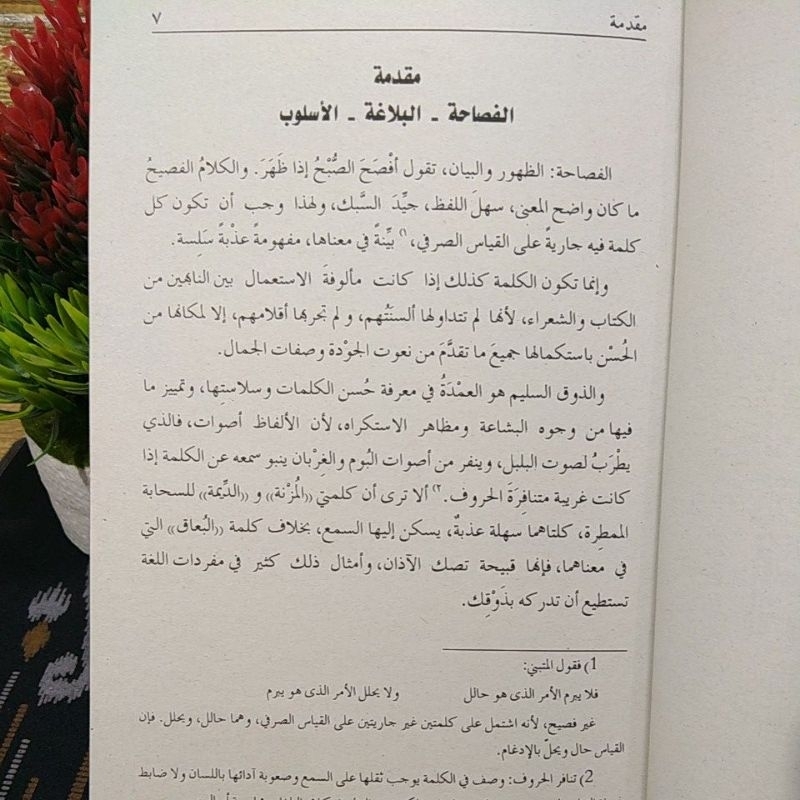 مقدمة ٧
مقدمة
الفصاحة - البلاغة - الأسلوب
الفصاحة: الظهور والبيان، تقول أفْصَحَ الصُّبْحُ إذا ظَهَرَ. والكلامُ الفصيحُ
ما كان واضح المعنى، سهلَ اللفظ، جيِّدَ السَّبك، ولهذا وجب أن تكون كل
كلمة فيه جاريةً على القياس الصرفي، ١) بيِّنةً في معناها، مفهومةً عذْبةً سَلِسة.
وإنما تكون الكلمة كذلك إذا كانت مألوفةَ الاستعمال بين النابهين من
الكتاب والشعراء، لأنها لم تتداولها ألسنَتُهم، و لم تجرِ بها أقلامهم، إلا لمكانها من
الحُسْن باستكمالها جميعَ ما تقدَّمَ من نعوت الجوْدة وصفات الجمال.
والذوق السليم هو العمْدَةُ في معرفة حُسن الكلمات وسلاستِها، وتمييز ما
فيها من وجوه البشاعة ومظاهر الاستكراه، لأن الألفاظ أصوات، فالذي
يطْرَبُ لصوت البلبل، وينفر من أصوات البُوم والغِرْبان ينبو سمعه عن الكلمة إذا
كانت غريبة متنافِرَةَ الحروف. ٢) ألا ترى أن كلمتي «المُزْنة» و «الدِّيمة» للسحابة
الممطِرة، كلتاهما سهلة عذبةٌ، يسكن إليها السمع، بخلاف كلمة «البُعاق» التي
في معناهما، فإنها قبيحة تصك الآذان، وأمثال ذلك كثير في مفردات اللغة
تستطيع أن تدركه بذَوْقِك.
1) فقول المتنبي:
فلا يبرم الأمر الذى هو حالل ولا يحلل الأمر الذى هو يبرم
غير فصيح، لأنه اشتمل على كلمتين غير جاريتين على القياس الصرفي، وهما حالل، ويحلل. فإن
القياس حال ويحلّ بالإدغام.
2) تنافر الحروف: وصف في الكلمة يوجب ثقلها على السمع وصعوبة آدائها باللسان ولا ضابط